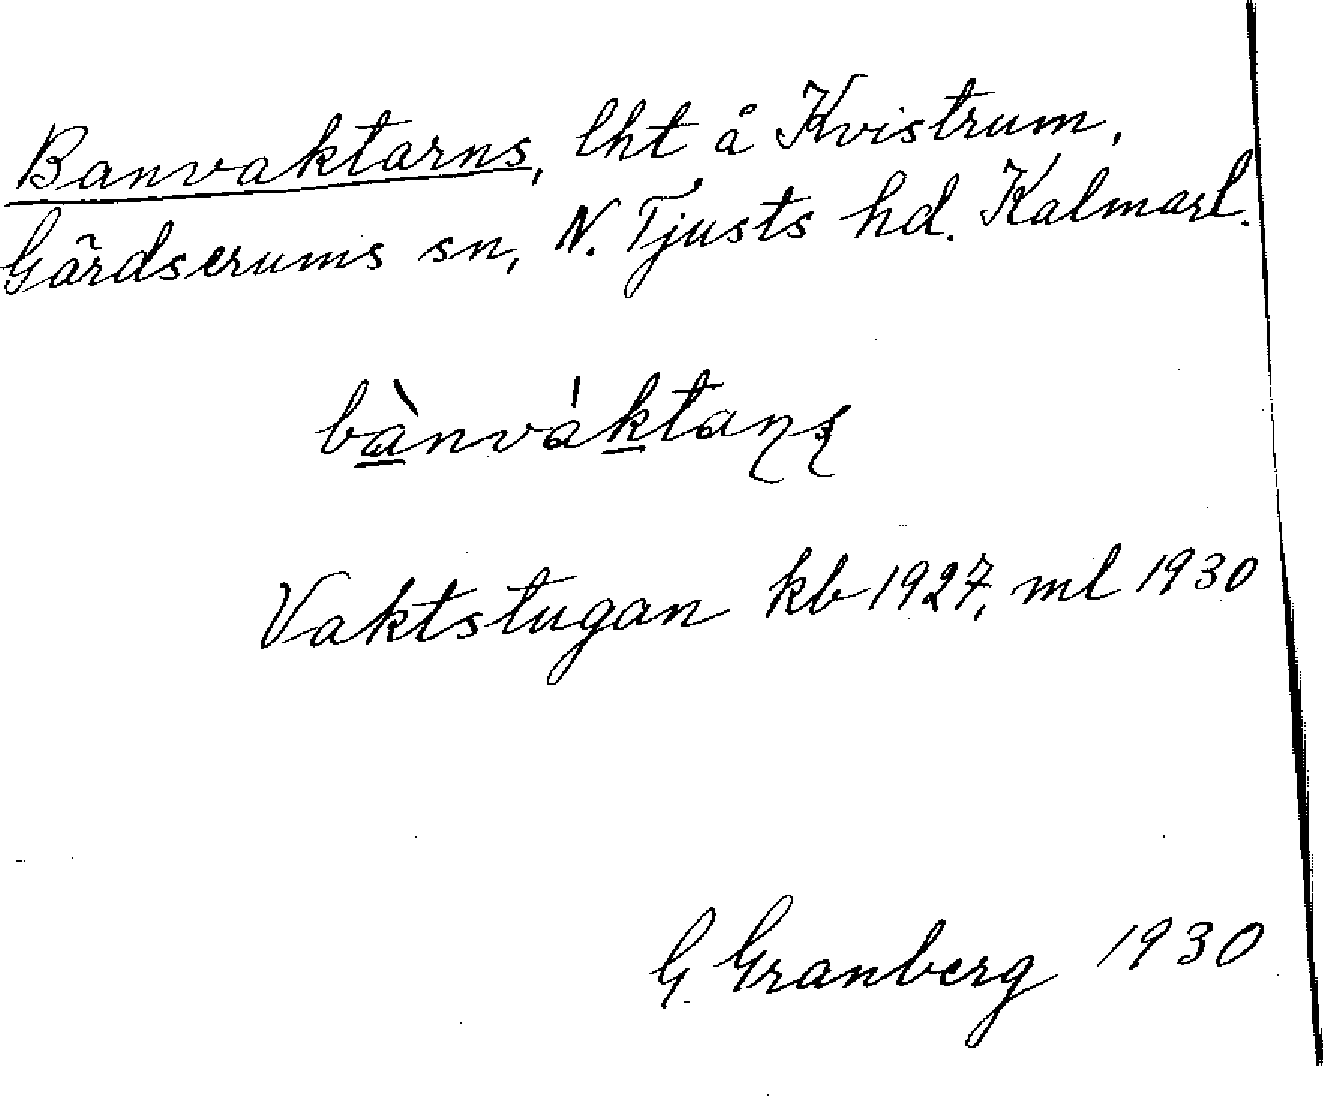 Banvaktarns, lht å Kvistrum,
Gärdserums sn, N. Tjusts hd. Kalmarl.
bànváktaɳʂ
Vaktstugan kb 1927, ml 1930
G. Granberg 1930